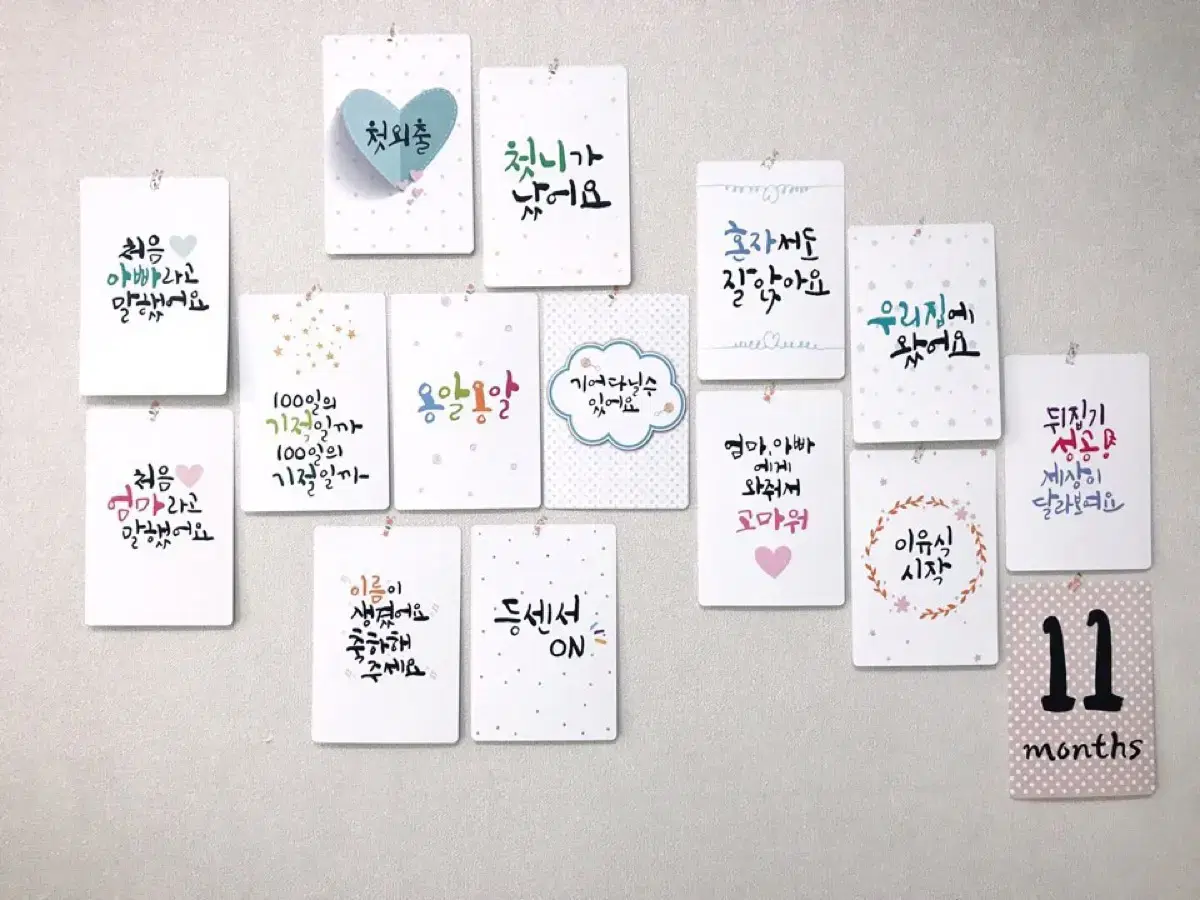 첫외출
첫니가
났어요
처음
아빠라고
말했어요
혼자서도
잘 앉아요
우리집에
왔어요
100일의
기적일까
100일의
기절일까~
옹알옹알
기어다닐수
있어요
뒤집기
성공!
세상이
달라보여요
처음
엄마라고
말했어요
엄마, 아빠
에게
와줘서
고마워
이유식
시작
이름이
생겼어요
축하해
주세요
등센서
ON
11
months